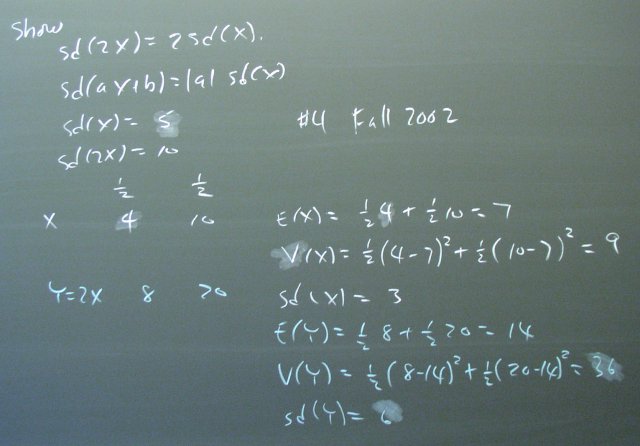 Show
sd(2X) = 2 sd(X).
sd(aX+b) = |a| sd(X)
sd(X) = 5
sd(2X) = 10
#4 Fall 2002
½ ½
X 4 10
Y=2X 8 20
E(X) = ½ 4 + ½ 10 = 7
V(X) = ½(4-7)² + ½(10-7)² = 9
sd(X) = 3
E(Y) = ½ 8 + ½ 20 = 14
V(Y) = ½(8-14)² + ½(20-14)² = 36
sd(Y) = 6